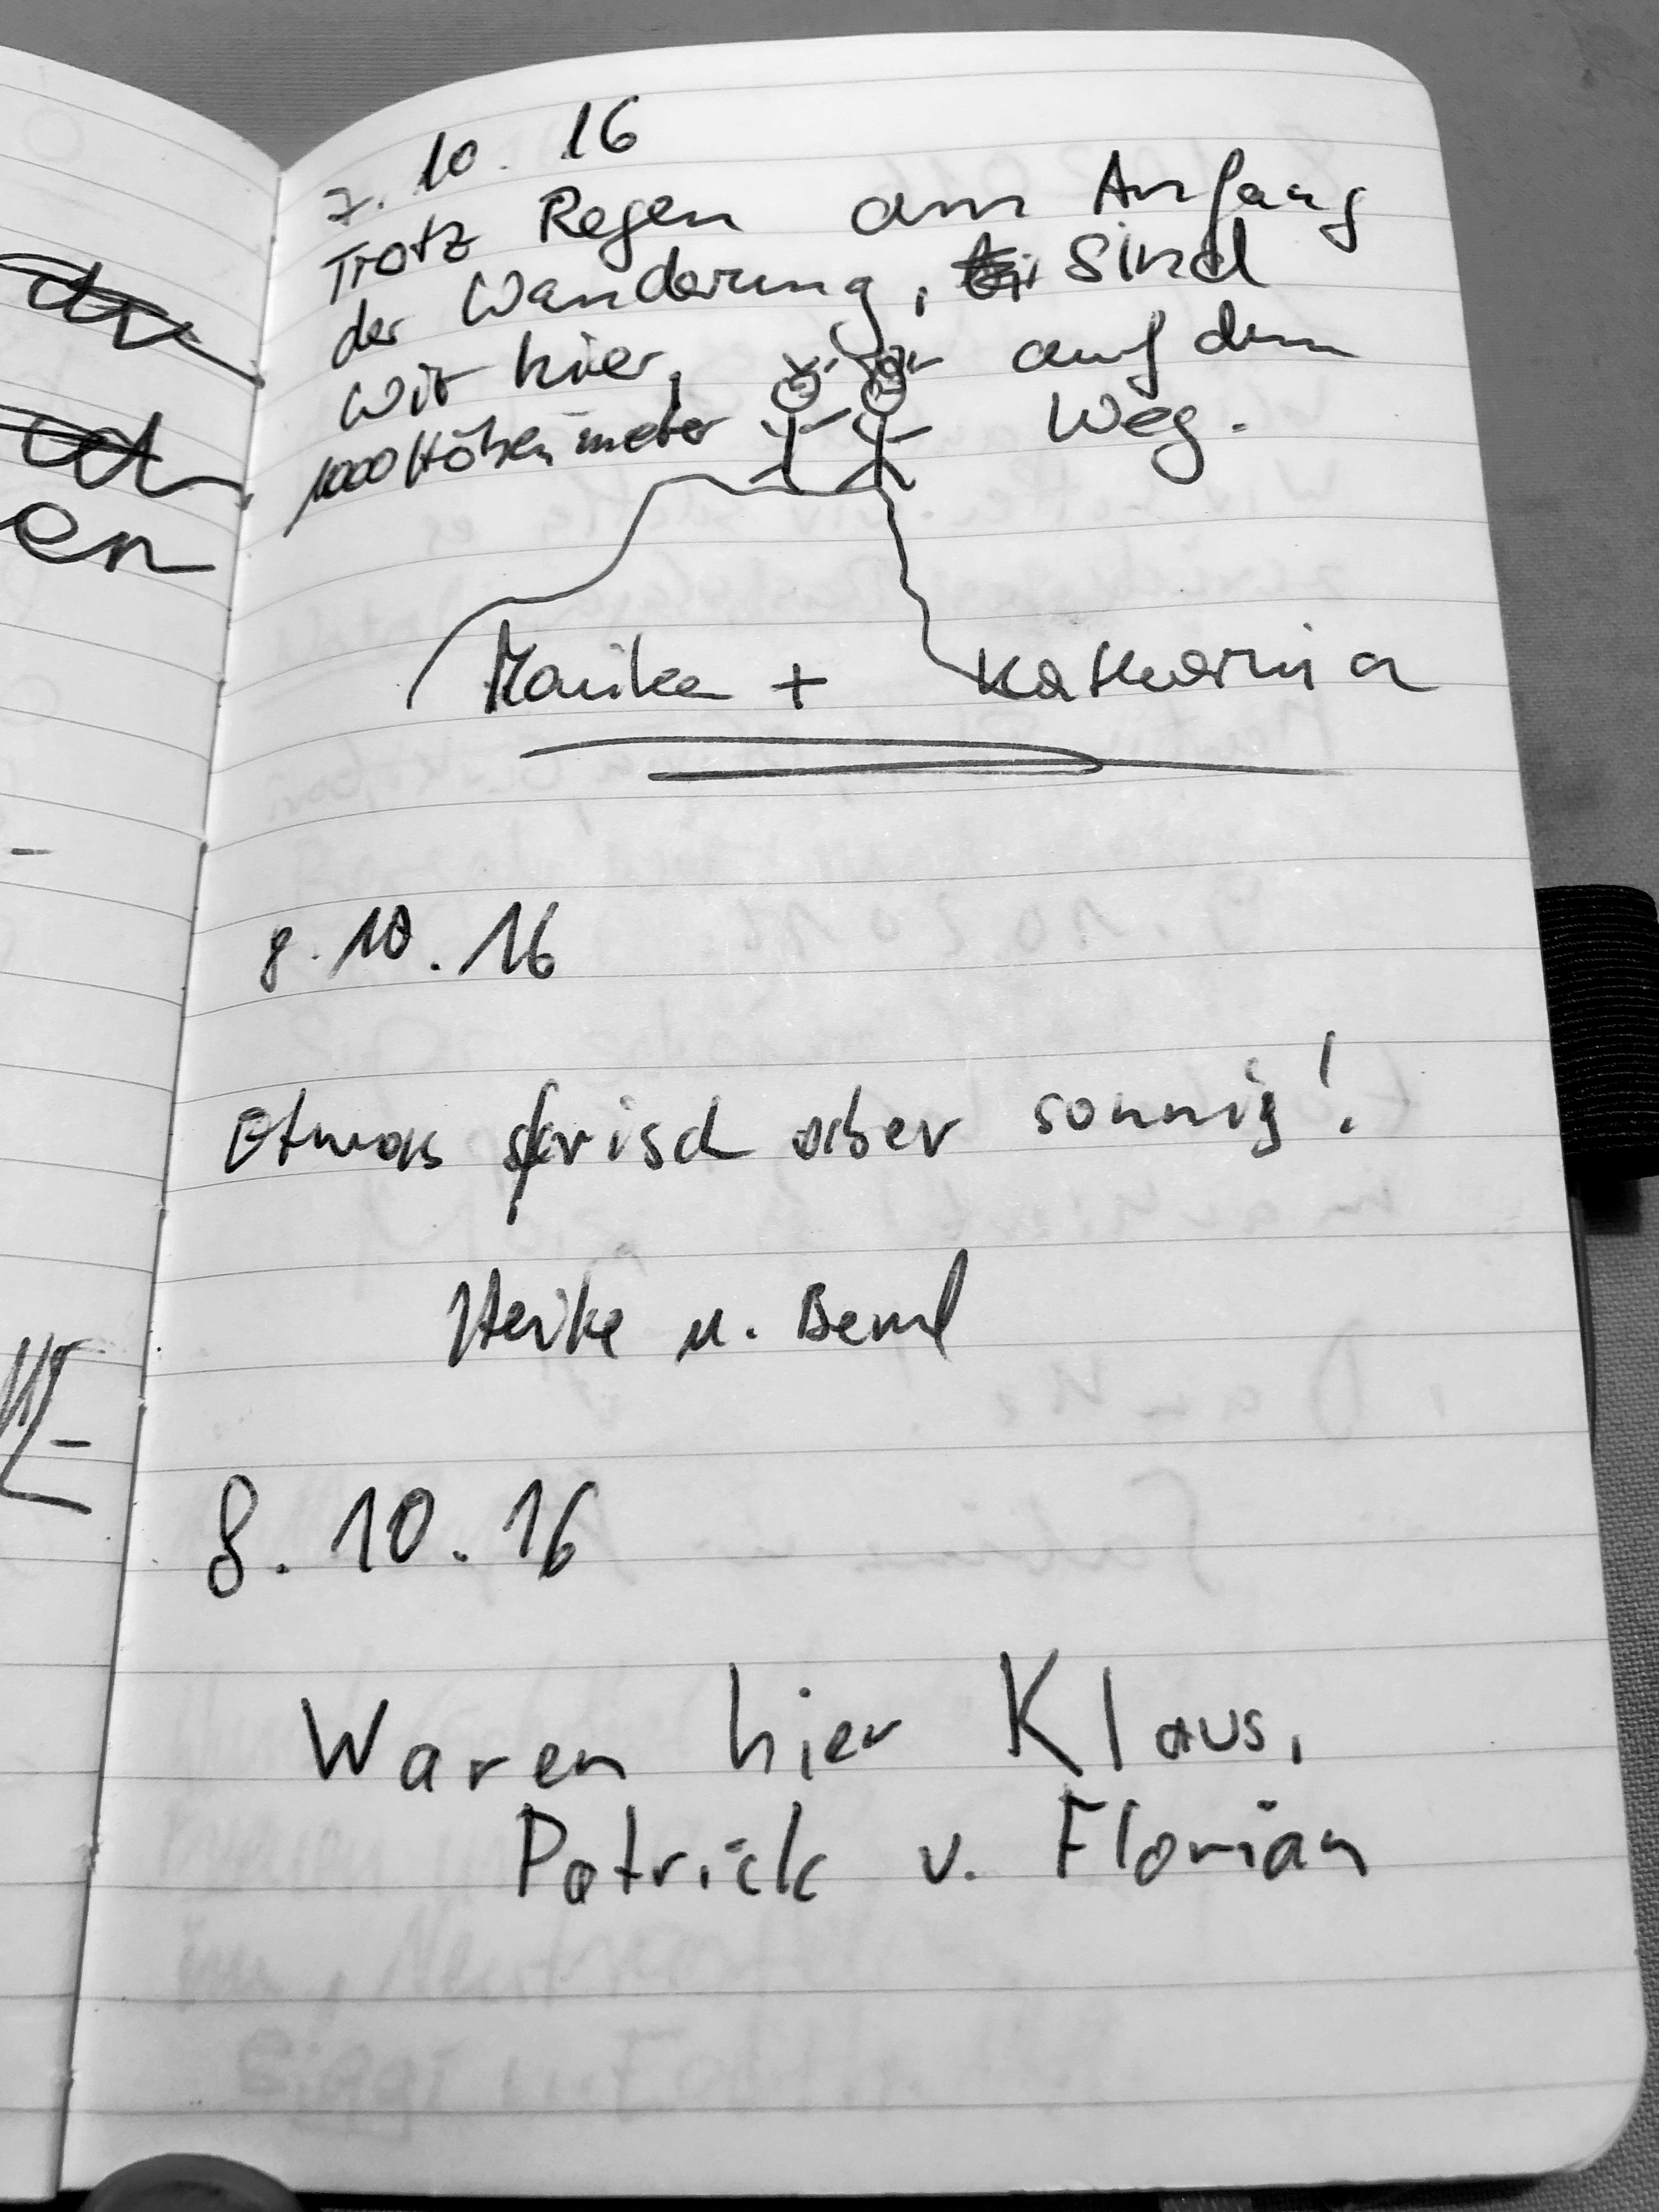 en
7. 10. 16
Trotz Regen am Anfang
der Wanderung, sind
wir hier, auf dem
1000 Höhenmeter Weg.
Monika + Katharina
8. 10. 16
Etwas frisch aber sonnig!
Heike u. Bernd
8. 10. 16
Waren hier Klaus,
Patrick u. Florian